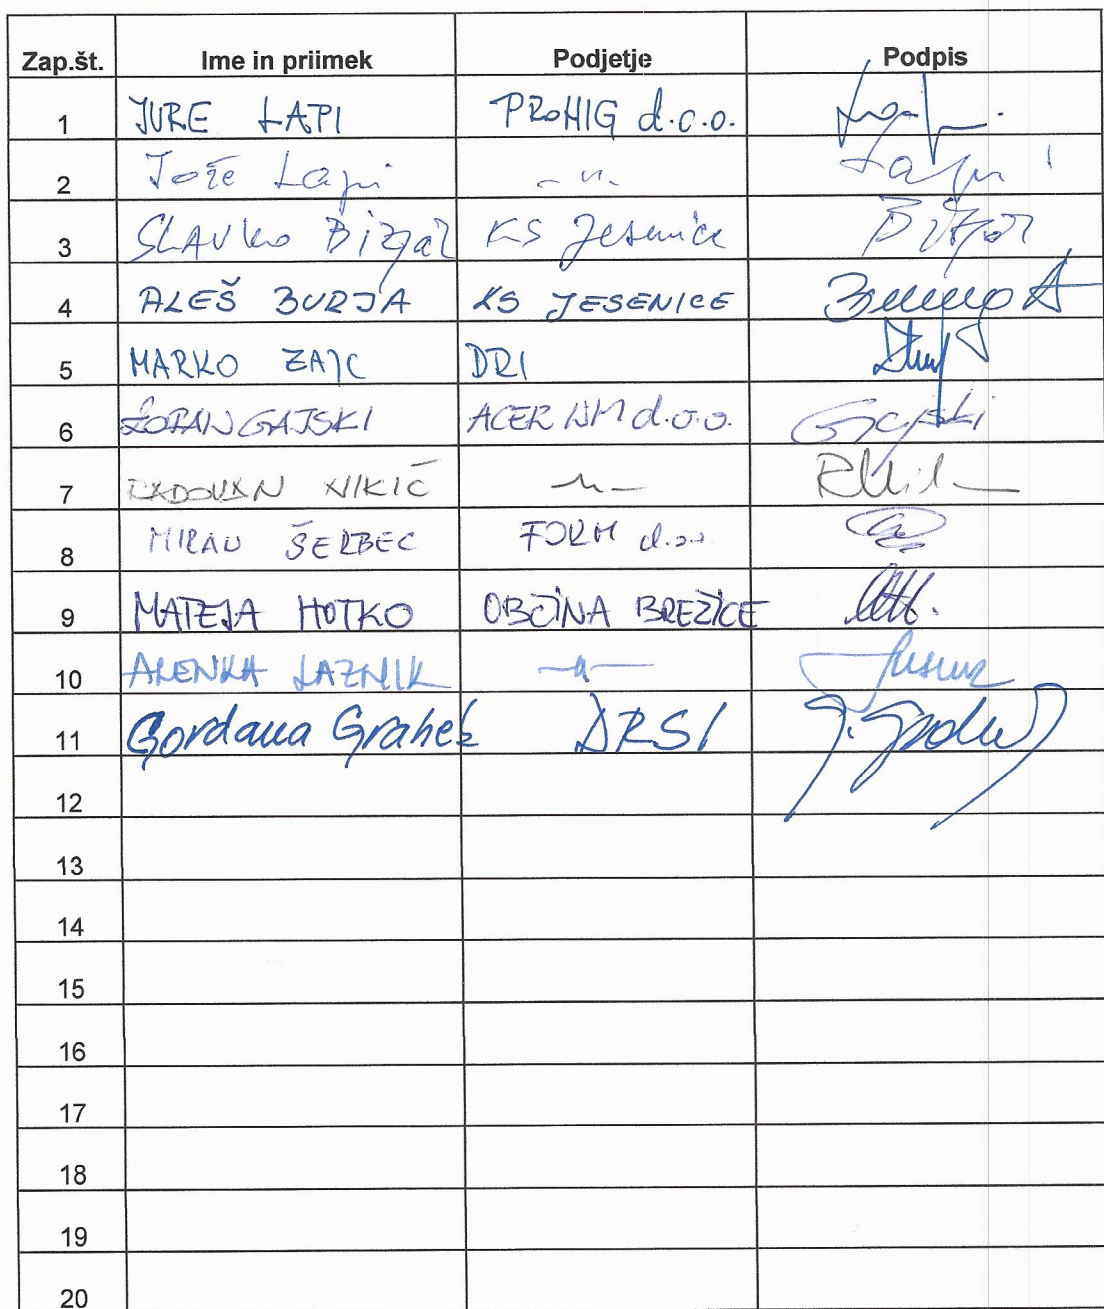 Zap.št. Ime in priimek Podjetje Podpis
1 JURE LAPI PROHIG d.o.o.
2 Jože Lapi -"- Lapi
3 SLAVKO Bizjar KS Jesenice Bizjar
4 ALEŠ BURJA KS JESENICE
5 MARKO ZAJC DRI
6 ZORAN GAJSKI ACER NM d.o.o. Gajski
7 RADOVAN NIKIĆ -"-
8 MIRAN ŠERBEC FORM d.o.o.
9 MATEJA HOTKO OBČINA BREŽICE
10 ALENKA LAZNIK -"-
11 Gordana Grahek DRSI
12
13
14
15
16
17
18
19
20